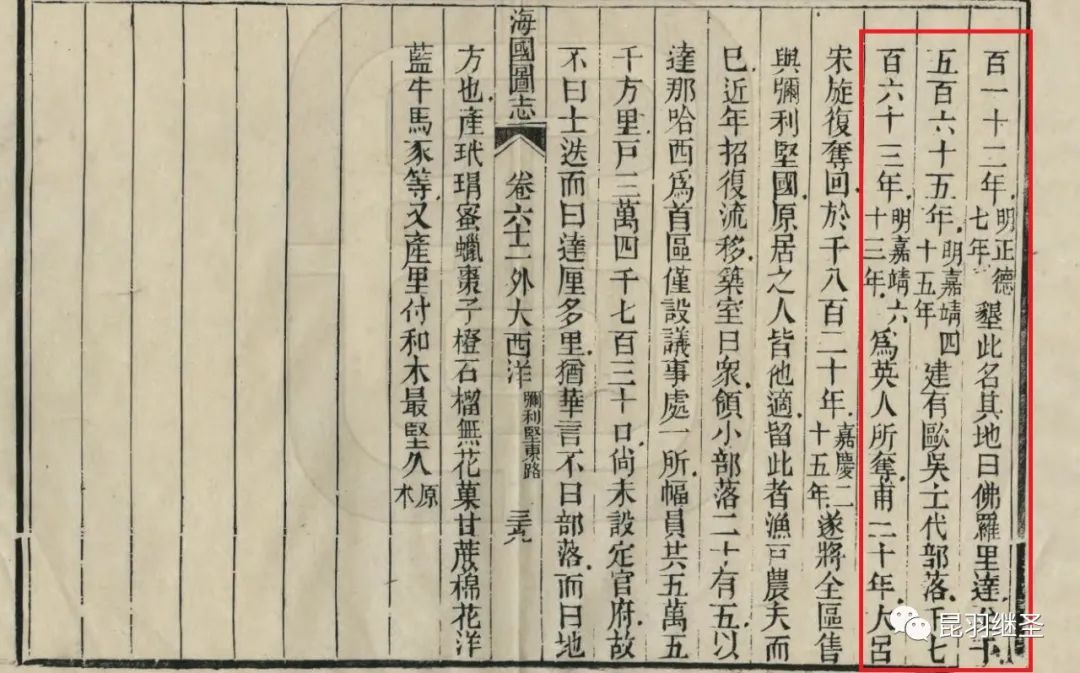 百一十二年明正德七年墾此名其地曰佛羅里達
五百六十五年明嘉靖四十五年建有歐吳士代部落千七
百六十三年明嘉靖六十三年爲英人所奪甫二十年大呂
宋旋復奪回於千八百二十年嘉慶二十五年遂將全區售
與彌利堅國原居之人皆他適留此者漁戶農夫而
已近年招復流移築室日衆領小部落二十有五以
達那哈西爲首區僅設議事處一所幅員共五萬五
千方里戶三萬四千七百三十口尚未設定官府故
不曰士迭而曰達厘多里猶華言不曰部落而曰地
海國圖志 卷六十一 外大西洋 彌利堅東路 三九
方也產玳瑁蜜蠟棗子橙石榴無花菓甘蔗棉花洋
藍牛馬豕等又產里付和木最堅久原本
昆羽继圣